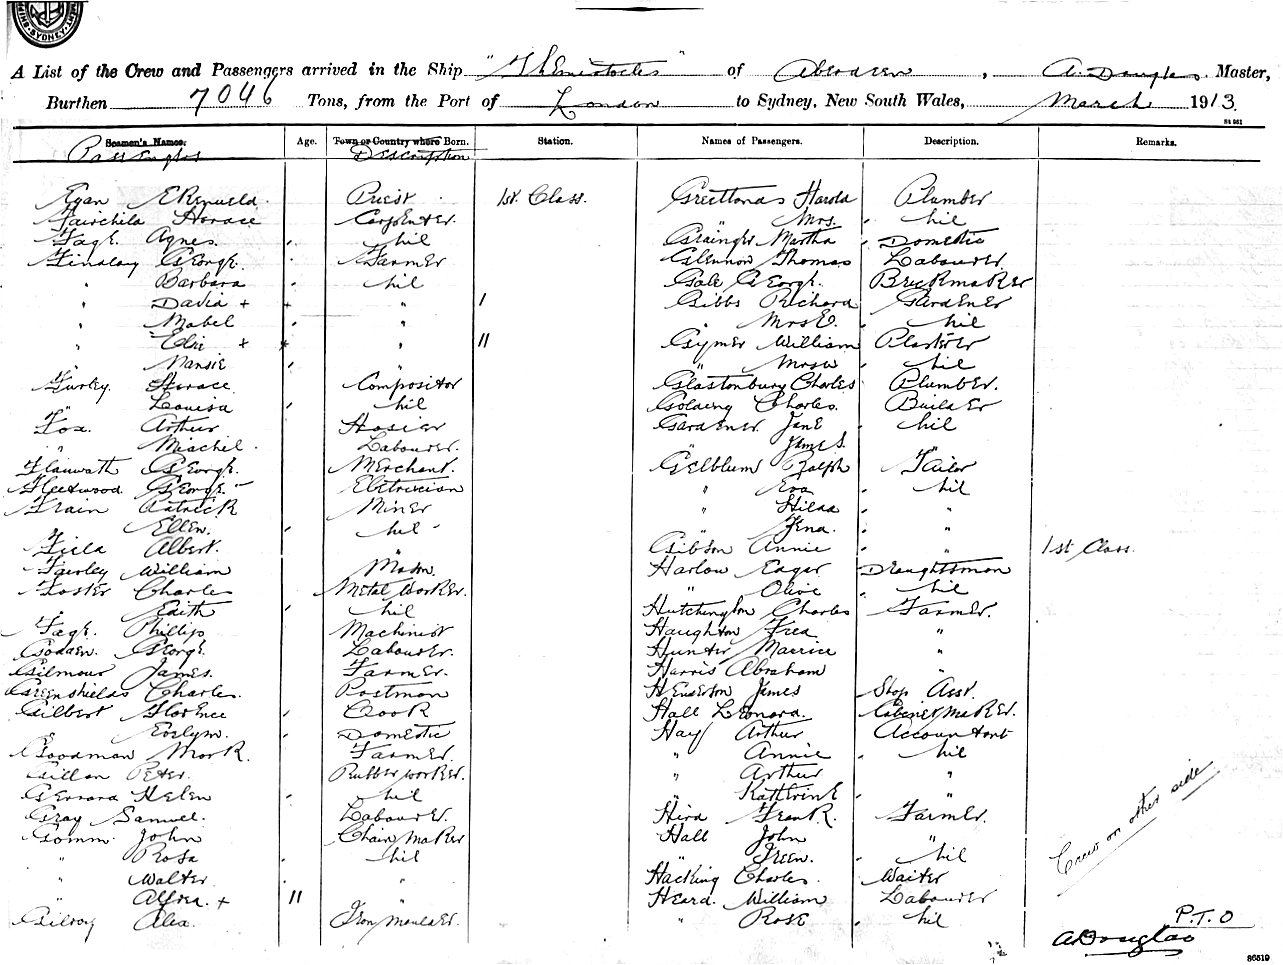 SYDNEY
A List of the Crew and Passengers arrived in the Ship "Themistocles" of Aberdeen, A. Douglas Master,
Burthen 7046 Tons, from the Port of London to Sydney, New South Wales, March 1913.
St 561
Seamen's Names. Age. Town or Country where Born. Station. Names of Passengers. Description. Remarks.
Passengers Description
Egan Priest 1st Class. Greettonds Harold Plumber
Fairchild Horace Carpenter. " Mrs. nil
Page. Agnes. nil Grainger Martha Domestic
Findlay George. Farmer Glennon Thomas Labourer
" Barbara nil Gale George. Brickmaker
" David + + " 1 Gibbs Richard Gardener
" Mabel " " Mrs E. nil
" Elsie + + " 11 Gymer William Plasterer
" Mansie " " Mrs nil
Furley. Horace Compositor Glastonbury Charles Plumber.
" Louisa nil Golding Charles. Builder
Fox. Arthur Hosier Gardener Jane nil
" Michel. Labourer. " James. "
George. Merchant. Gelblum Ralph Tailor
Fleetwood George. Eletrician " Eva nil
Frain Patrick Miner " Hilda "
" Ellen. nil " Jena. "
Field Albert. " Gibson Annie " 1st Class.
Fairley William Mason. Harlow Edgar Draughtsman
Foster Charles Metal Worker. " Olive nil
" Edith nil Hutchington Charles Farmer.
Page. Phillip Machinist Haughton Fred "
Godden. George. Labourer. Hunter Maurice "
Gilmour James. Farmer. Harris Abraham "
Greenshields Charles. Postman Henderson James Shop Asst.
Gilbert Florence Cook Hall Leonard. Cabinet Maker.
" Evelyn. Domestic Hay Arthur Accountant
Goodman Mark. Farmer. " Annie nil
Gillon Peter. Rubber worker. " Arthur "
Gerrard Helen nil " Kathrine "
Gray Samuel. Labourer. Hird Frank. Farmer.
Gomm John Chair Maker Hall John "
" Rosa nil " Ireen. nil
" Walter " Hacking Charles. Waiter
" Alfred. + 11 " Heard. William Labourer
Gilroy Alex. Iron Moulder. " Rose nil
Crew on other side
P.T.O
A Douglas
86519